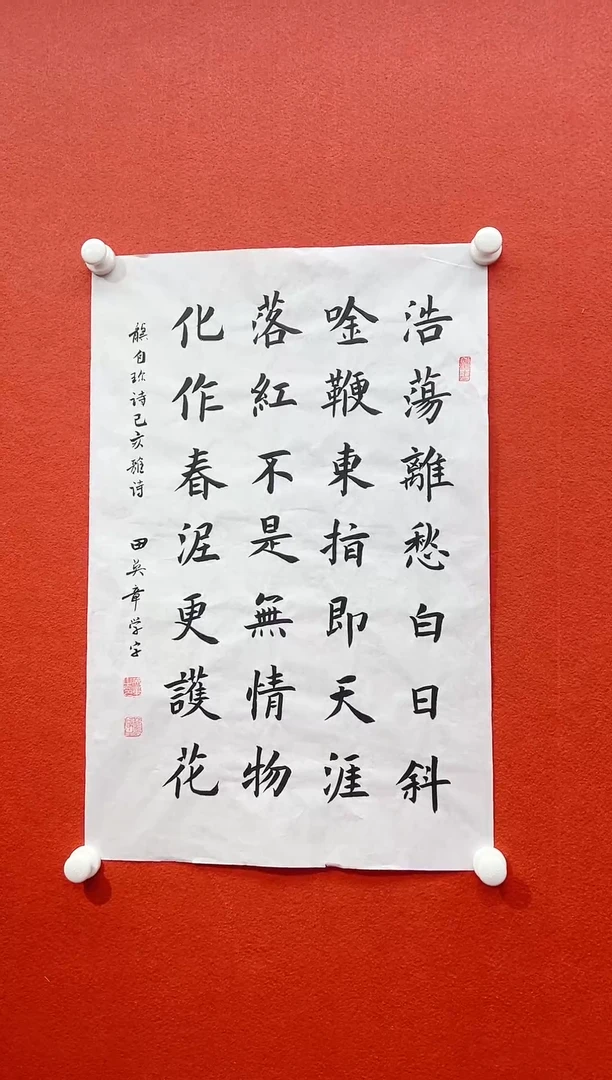 浩蕩離愁白日斜
唫鞭東指即天涯
落紅不是無情物
化作春泥更護花
龔自珍诗己亥雜诗
田英章学字